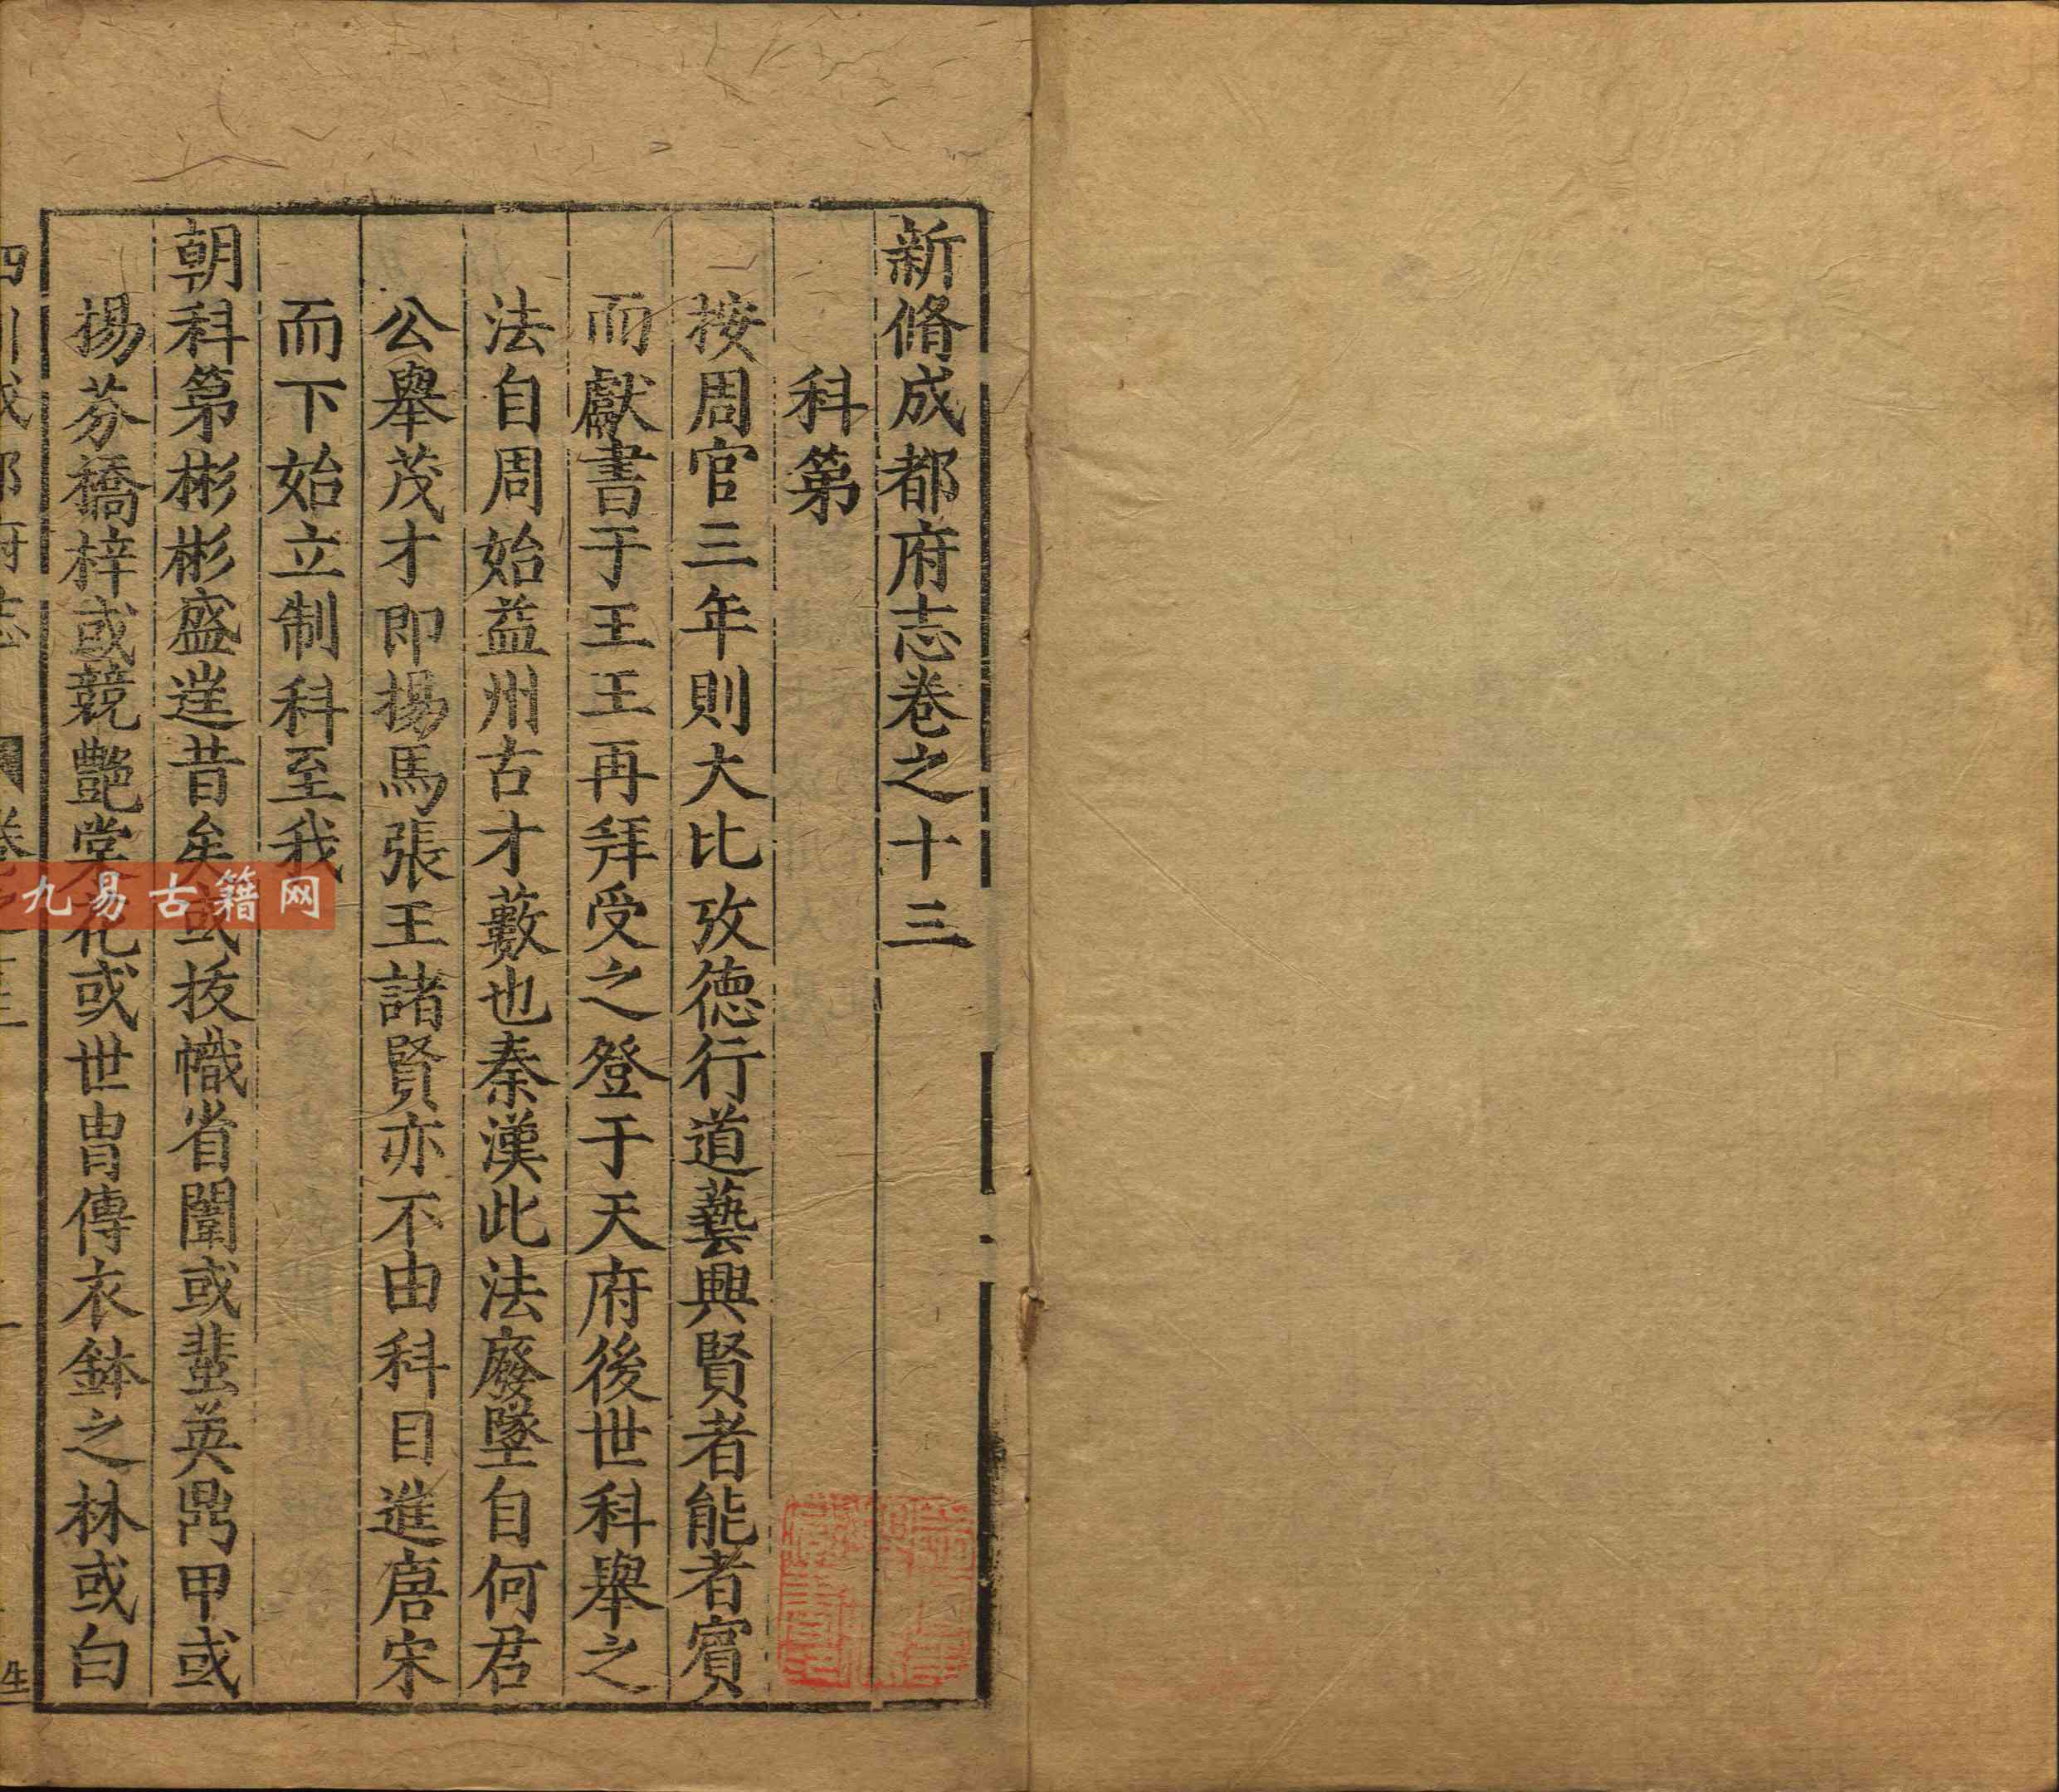 新脩成都府志卷之十三
科第
按周官三年則大比攷德行道藝興賢者能者賓
而獻書于王王再拜受之登于天府後世科舉之
法自周始益州古才藪也秦漢此法廢墜自何君
公舉茂才即揚馬張王諸賢亦不由科目進唐宋
而下始立制科至我
朝科第彬彬盛逹昔矣或拔幟省闈或蜚英鼎甲或
揚芬橋梓或競艷棠花或世胄傳衣鉢之林或白
九易古籍网